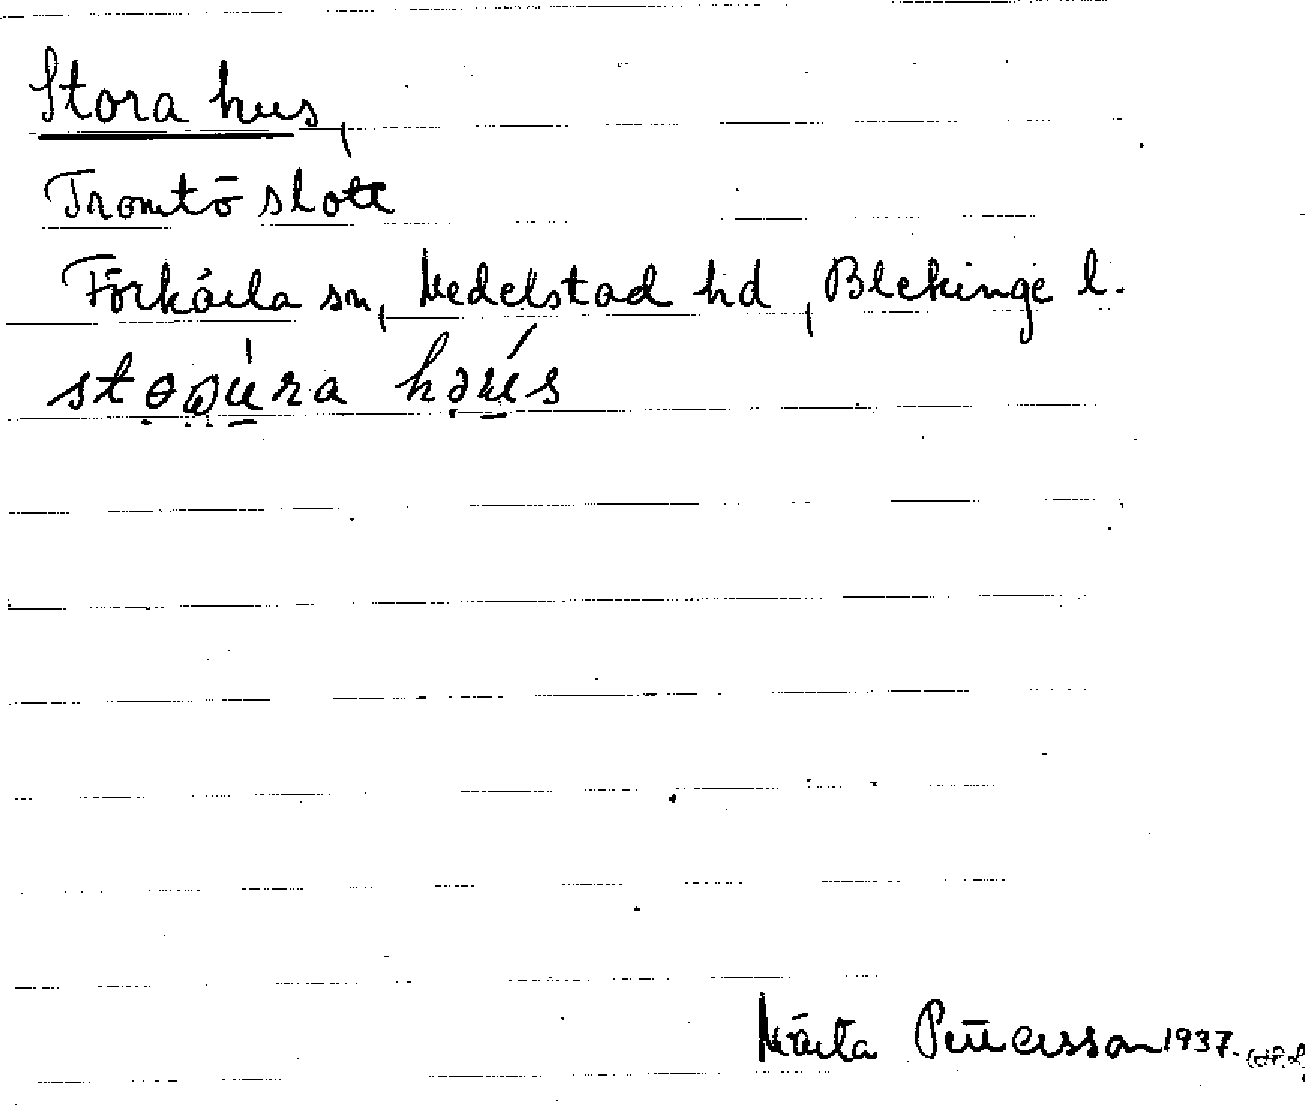 Stora hus,
Tromtö slott
Förkärla sn, Medelstad hd, Blekinge l.
Märta Pettersson 1937.